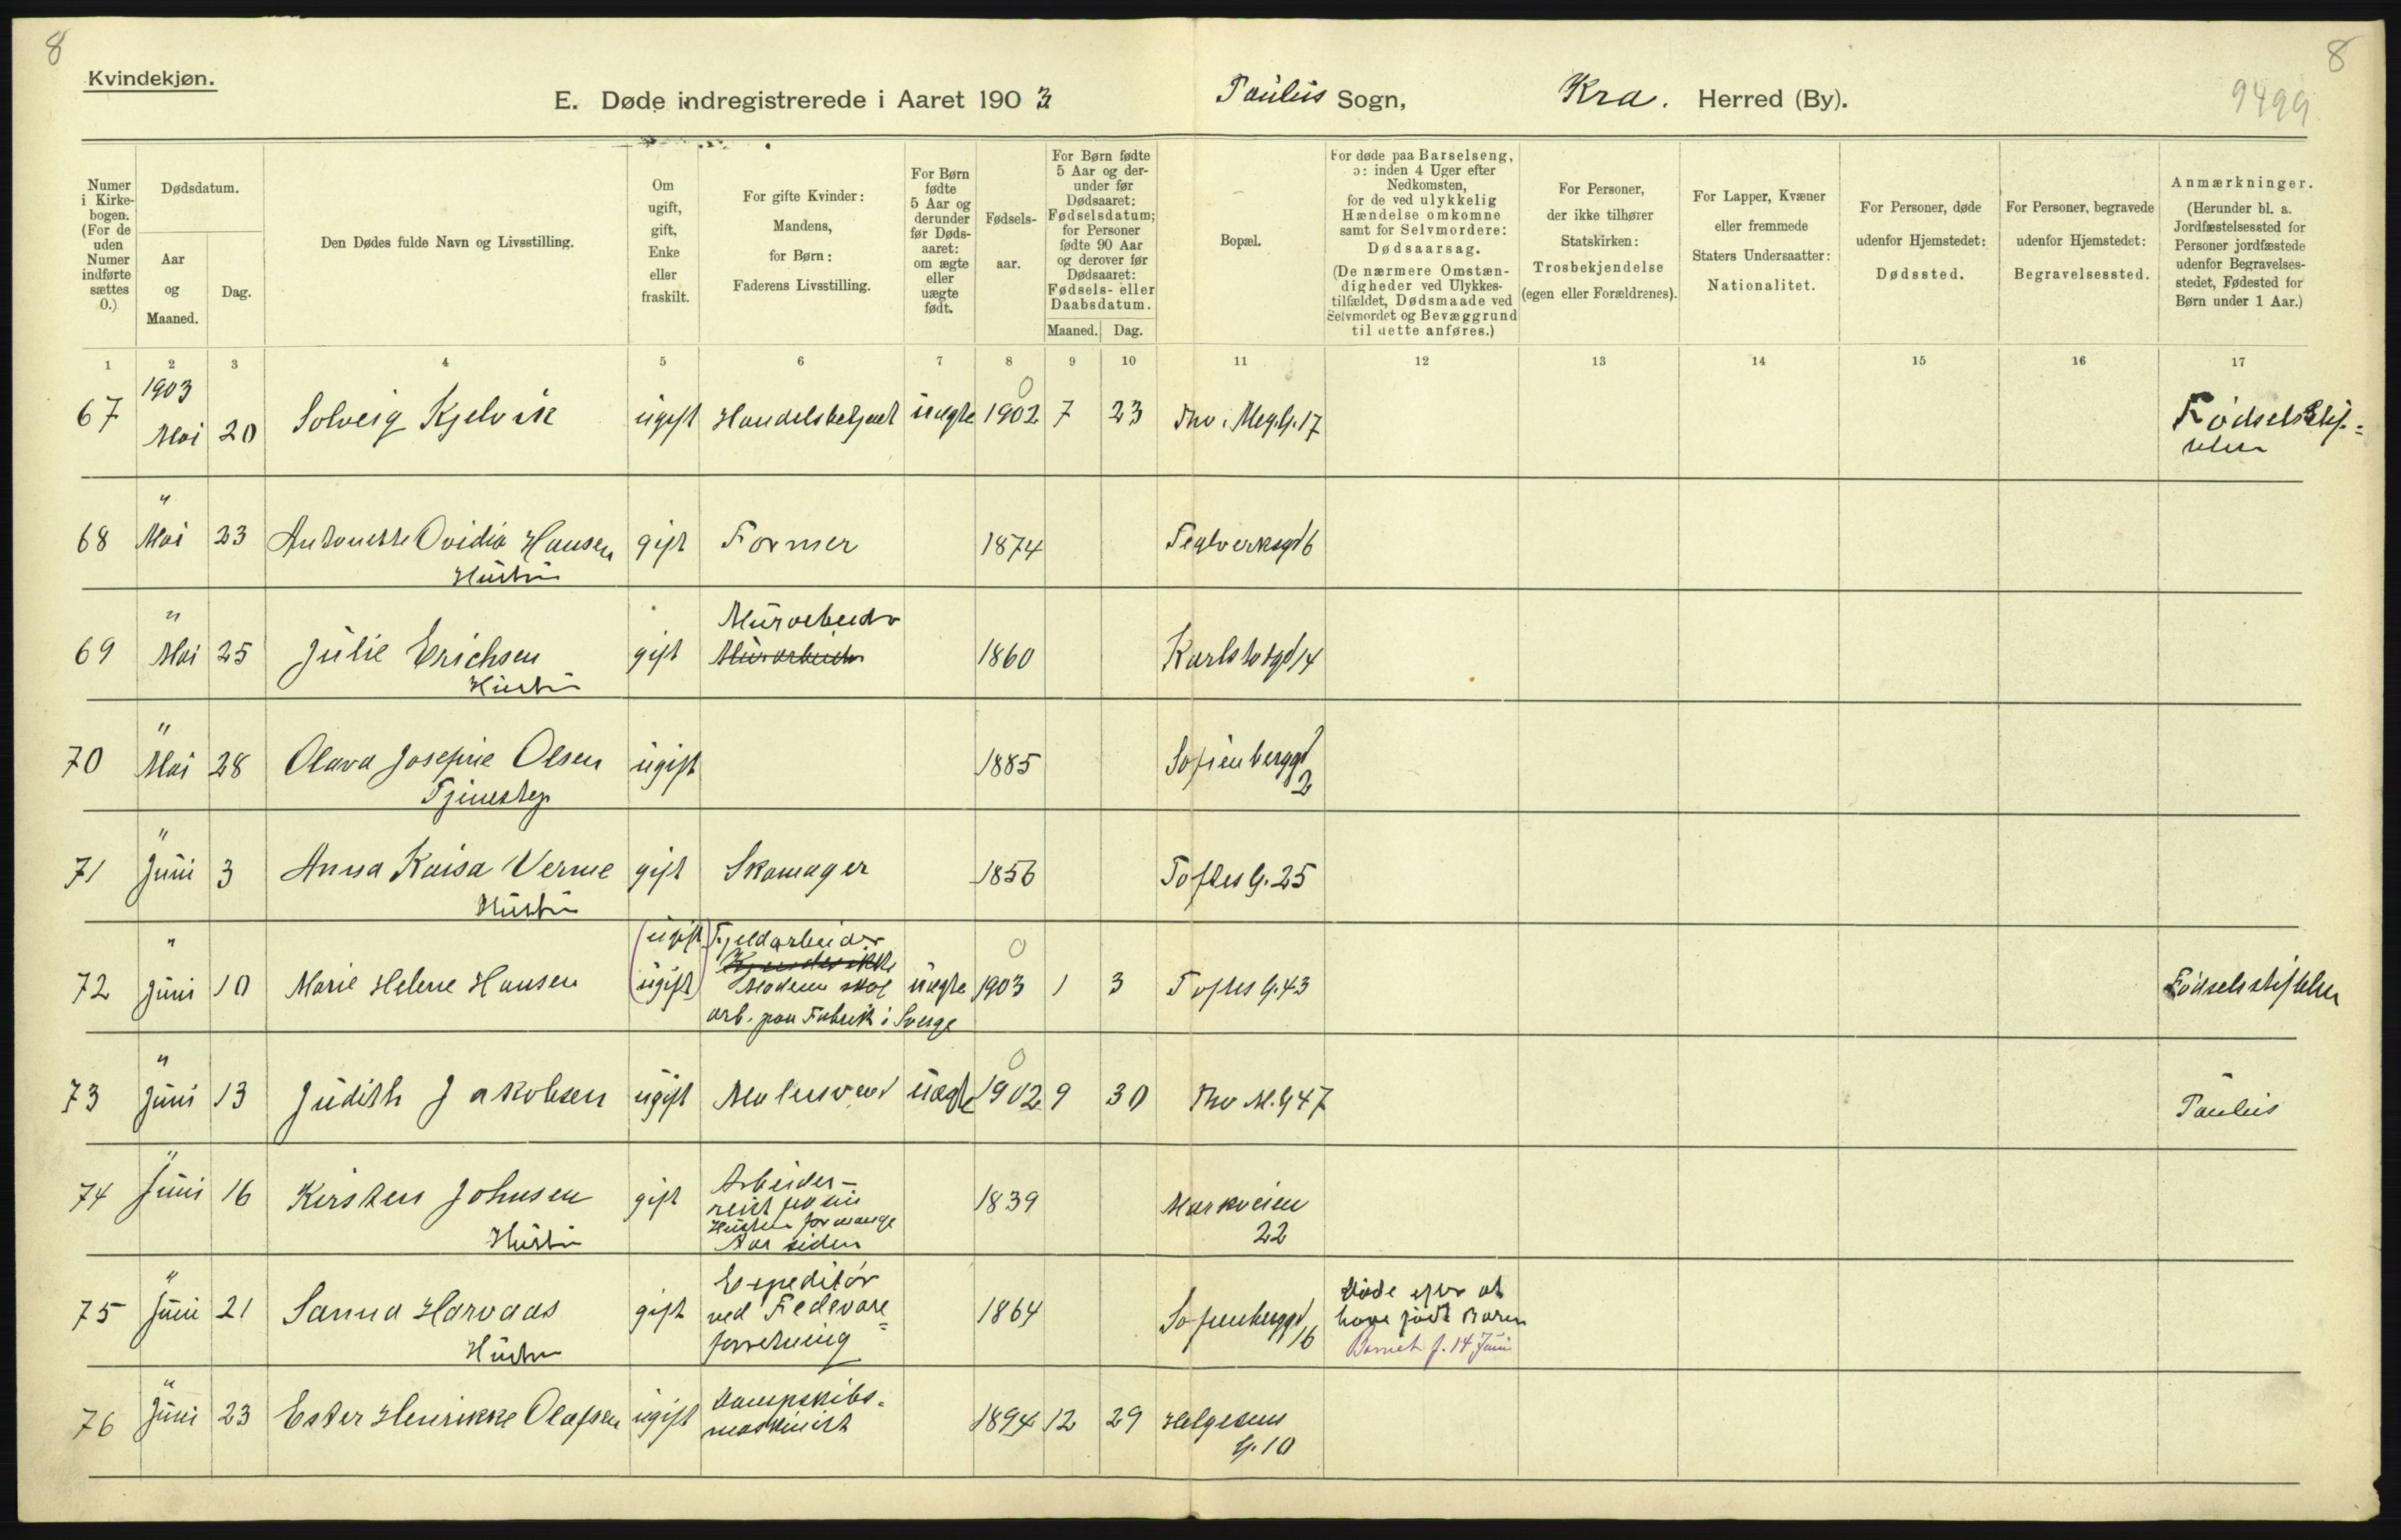 8
8
Kvindekjøn.
E. Døde indregistrerede i Aaret 1903
Paulus Sogn,
Kra. Herred (By).
9499
Numer
i Kirke-
bogen.
(For de
uden
Numer
indførte
sættes
0.)
Dødsdatum.
Aar
og
Maaned.
Dag.
Den Dødes fulde Navn og Livsstilling.
Om
ugift,
gift,
Enke
eller
fraskilt.
For gifte Kvinder:
Mandens,
for Børn:
Faderens Livsstilling.
For Børn
fødte
5 Aar og
derunder
før Døds-
aaret:
om ægte
eller
uægte
født.
Fødsels-
aar.
For Børn fødte
5 Aar og der-
under før
Dødsaaret:
Fødselsdatum;
for Personer
fødte 90 Aar
og derover før
Dødsaaret:
Fødsels- eller
Daabsdatum.
Maaned. Dag.
Bopæl.
For døde paa Barselseng,
ɔ: inden 4 Uger efter
Nedkomsten,
for de ved ulykkelig
Hændelse omkomne
samt for Selvmordere:
Dødsaarsag.
(De nærmere Omstæn-
digheder ved Ulykkes-
tilfældet, Dødsmaade ved
Selvmordet og Bevæggrund
til dette anføres.)
For Personer,
der ikke tilhører
Statskirken:
Trosbekjendelse
(egen eller Forældrenes).
For Lapper, Kvæner
eller fremmede
Staters Undersaatter:
Nationalitet.
For Personer, døde
udenfor Hjemstedet:
Dødssted.
For Personer, begravede
udenfor Hjemstedet:
Begravelsessted.
Anmærkninger.
(Herunder bl. a.
Jordfæstelsessted for
Personer jordfæstede
udenfor Begravelses-
stedet, Fødested for
Børn under 1 Aar.)
1 2 3 4 5 6 7 8 9 10 11 12 13 14 15 16 17
1903
0
67 Mai 20 Solveig Kjelvik ugift Handelsbetjent uægte 1902 7 23 Thv. Meg.G. 17 Fødselsstif=
telsen
"
68 Mai 23 Antonette Ovidia Hansen gift Former 1874 Teglverksgd 6
Hustru
"
Murarbeider
69 Mai 25 Julie Erichsen gift Murarbeider 1860 Karlstadgd 14
Hustru
"
70 Mai 28 Olava Josefine Olsen ugift 1885 Sofienberggd
Tjenestep. 2
"
71 Juni 3 Anna Kaisa Verme gift Skomager 1856 Toftes G. 25
Hustru
"
ugift Fjeldarbeider
0
Kjendes ikke
72 Juni 10 Marie Helene Hansen ugift Moderen skal uægte 1903 1 3 Toftes G. 43 Fødselsstiftelsen
arb. paa Fabrik i Sverge
"
0
73 Juni 13 Judith Jakobsen ugift uægte 1902 9 30 Thv M. G 47 Paulus
"
Arbeider –
74 Juni 16 Kirsten Johnsen gift reist fra sin 1839 Markveien
Hustru for mange 22
Hustru Aar siden
"
Expeditør
75 Juni 21 Sanna Harvaas gift ved Fedevare= 1864 Sofienberggd 16
Hustru forretning
Døde efter at
have født Barn
Barnet f. 14 Juni
"
Dampskibs=
76 Juni 23 Ester Henrikke Olafsen ugift maskinist 1894 12 29 Helgesens
G. 10